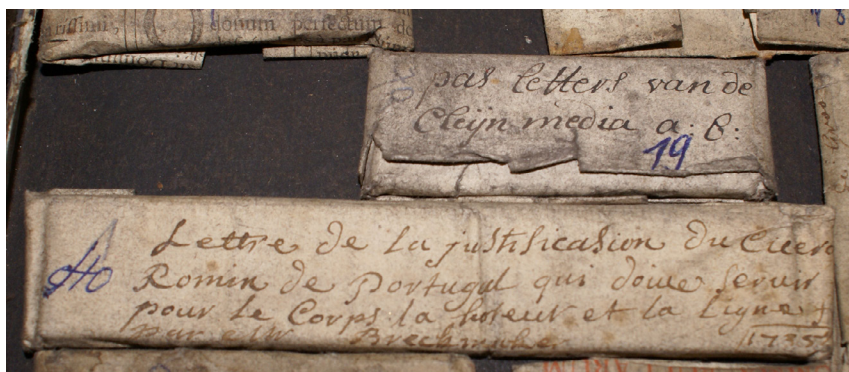 donum perfectum de
20
pas letters van de
Cleijn media a: b:
19
40
Lettre de la justificasion du Cicero
Romin de Portugal qui doive servir
pour le Corps la hoteur et la Ligne
par